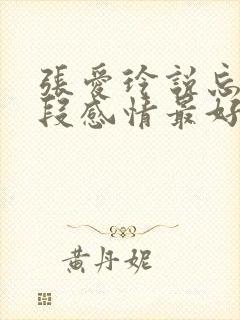 張愛玲說忘
段感情最好
黃丹妮